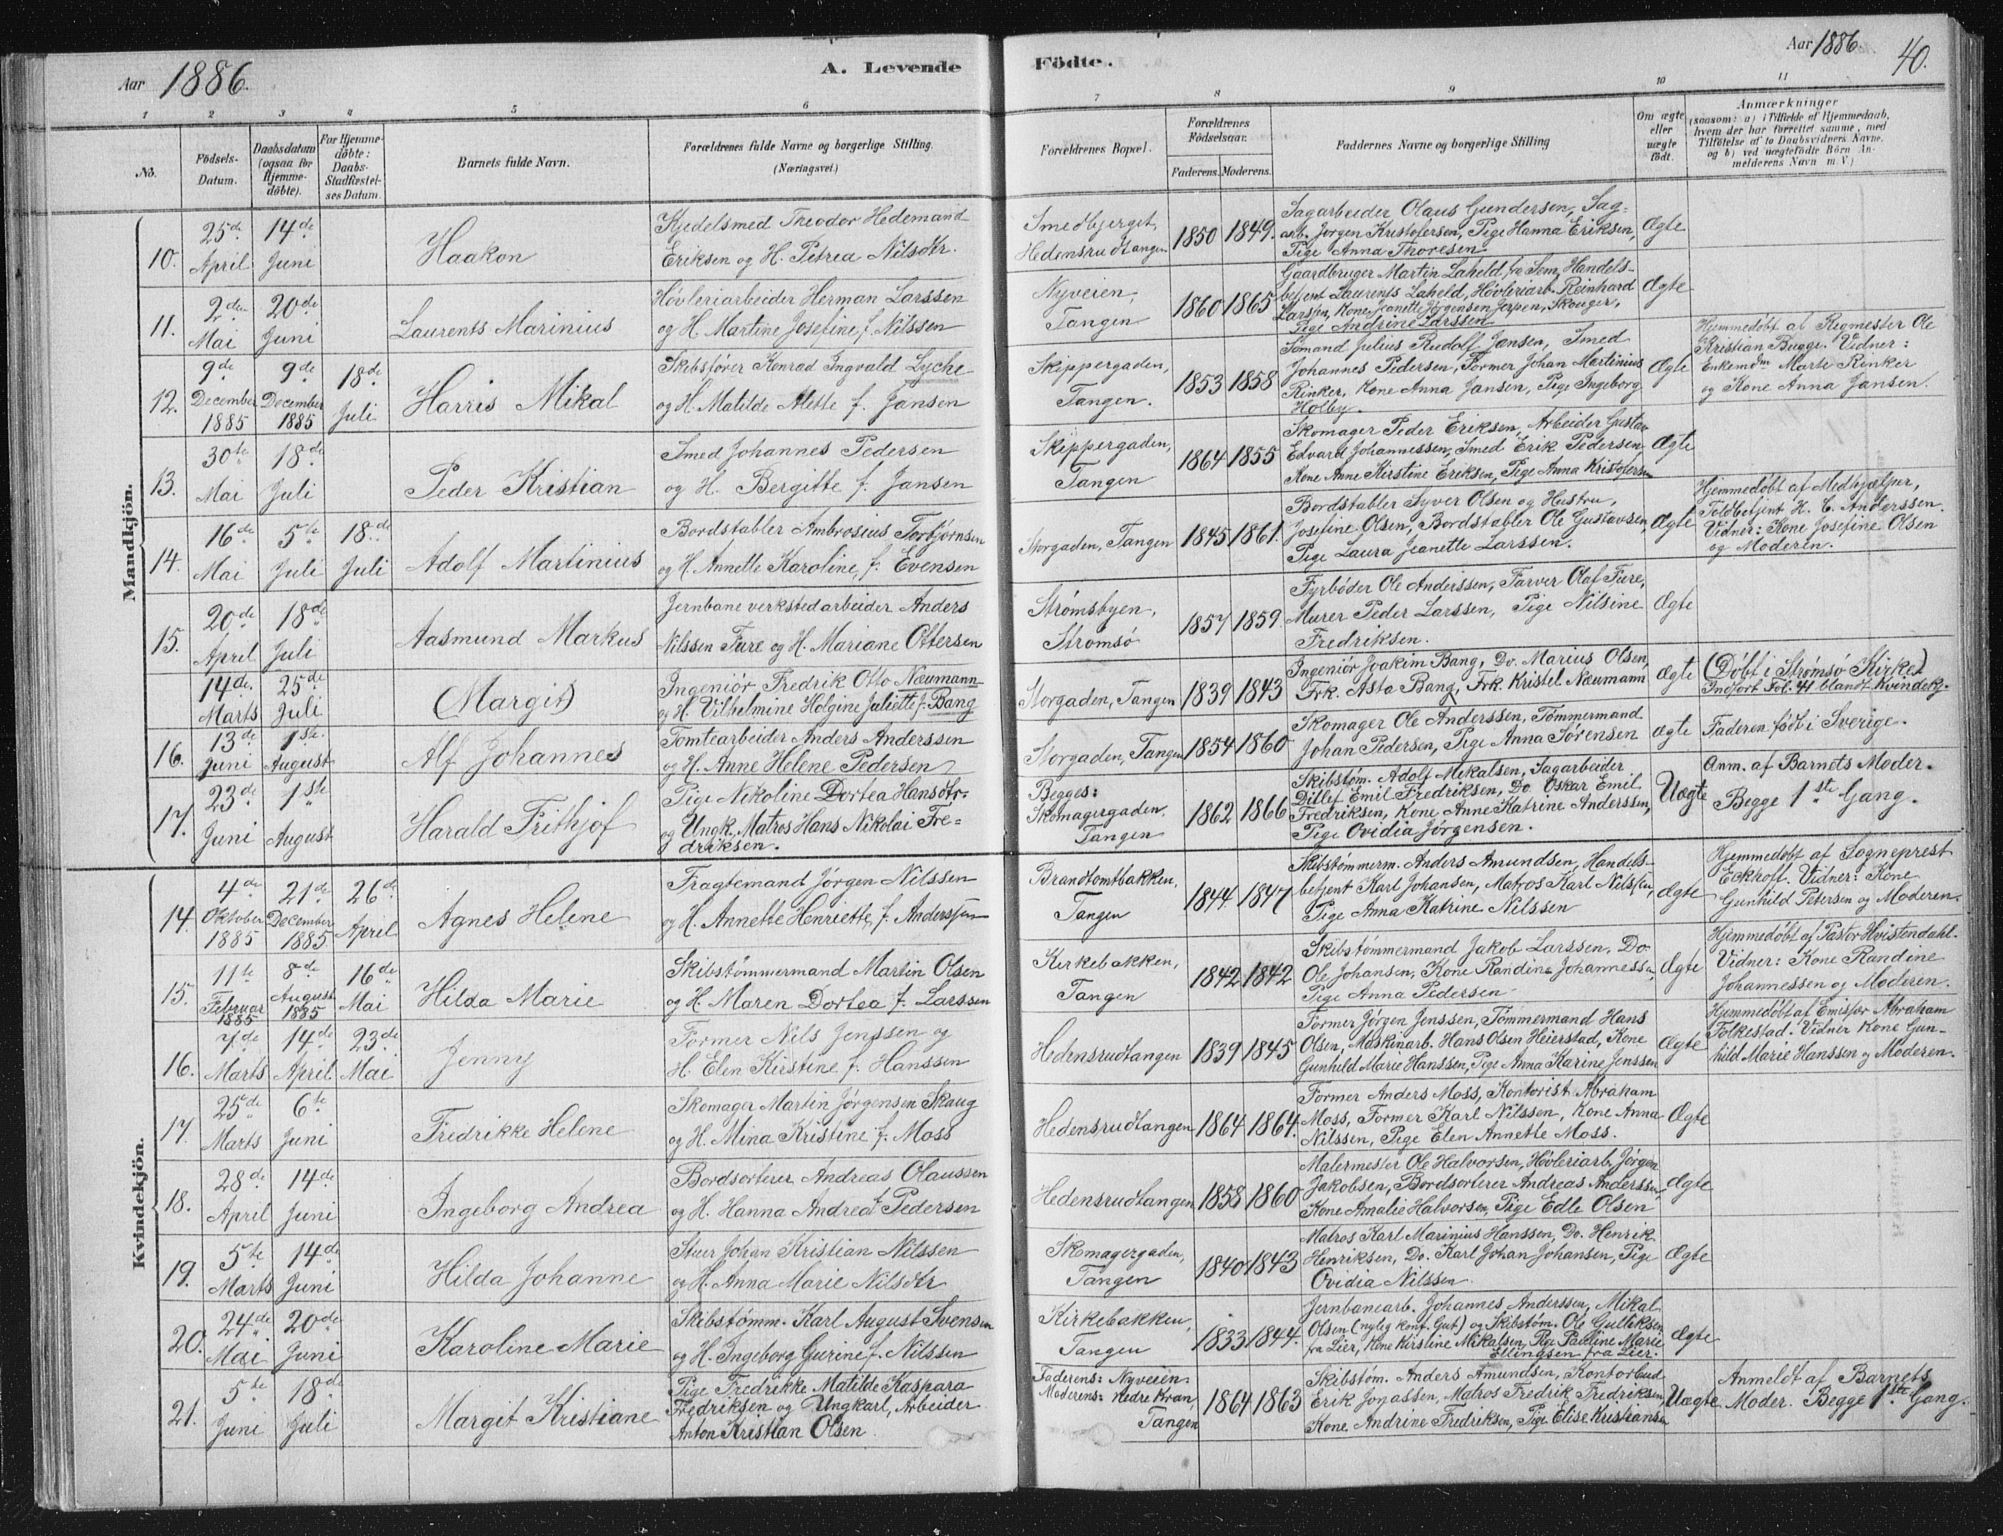 Aar 1886. A. Levende Födte. Aar 1886. 40.
1 2 3 4 5 6 7 8 9 10 11
No. Födsels-Datum. Daabsdatum (ogsaa for Hjemme-döbte). For Hjemme-döbte: Daabs-Stadfæstel-ses Datum. Barnets fulde Navn. Forældrenes fulde Navne og borgerlige Stilling. (Næringsvei.) Forældrenes Bopæl. Forældrenes Födselsaar. Faderens. Moderens. Faddernes Navne og borgerlige Stilling Om ægte eller uægte födt. Anmærkninger (saasom: a) i Tilfælde af Hjemmedaab, hvem der har forrettet samme, med Tilföielse af to Daabsvidners Navne, og b) ved uægtefödte Börn An-melderens Navn m. V.)
Mandkjön.
10. 25de April 14de Juni Haakon
Kjedelsmed Theodor Hedemand
Eriksen og H. Petrea Nilsdtr.
Smedbjerget,
Hedensrudtangen
1850 1849.
Sagarbeider Olaus Gundersen, Sag-
arb. Jørgen Kristofersen, Pige Hanna Eriksen,
Pige Anna Thoresen
Ægte
11. 2den Mai 20de Juni Laurents Marinius
Høvleriarbeider Herman Larssen
og H. Martine Josefine, f. Nilssen
Nyveien,
Tangen
1860 1865
Gaardbruger Martin Laheld, fra Sem, Handels-
betjent Laurents Laheld, Høvleriarb. Reinhard
Larssen, Kone Jeanette Jørgensen Jerpen, Skouger,
Pige Andrine Larssen
Ægte
12. 9de December 1885 9de December 1885 18de Juli Harris Mikal
Skibsfører Konrad Ingvald Lyche
og H. Matilde Alette f. Jansen
Skippergaden,
Tangen.
1853 1858
Sømand Julius Rudolf Jansen, Smed
Johannes Pedersen, Former Johan Martinius
Rinker, Kone Anna Jansen, Pige Ingeborg
Holby.
Ægte
Hjemmedøbt af Regmester Ole
Kristian Bugge. Vidner:
Enkemdm Marte Rinker
og Kone Anna Jansen.
13. 30te Mai 18de Juli Peder Kristian
Smed Johannes Pedersen
og H. Bergitte f. Jansen
Skippergaden,
Tangen
1864 1855
Skomager Peder Eriksen, Arbeider Gustav
Edvard Johannessen, Smed Erik Pedersen,
Kone Anne Kirstine Eriksen, Pige Anna Kristofersen
Ægte
14. 16de Mai 5te Juli 18de Juli Adolf Martinius
Bordstabler Ambrosius Torbjørnsen
og H. Annette Karoline, f. Evensen
Storgaden, Tangen
1845 1861.
Bordstabler Syver Olsen og Hustru,
Josefine Olsen, Bordstabler Ole Gustavsen,
Pige Laura Jeanette Larssen.
Ægte
Hjemmedøbt af Medhjælper,
Toldbetjent H. C. Anderssen.
Vidner: Kone Josefine Olsen
og Moderen.
15. 20de April 18de Juli Aasmund Markus
Jernbaneverkstedarbeider Anders
Nilssen Fure og H. Mariane Ottersen
Strømsbyen,
Strømsø
1857 1859
Fyrbøder Ole Anderssen, Farver Olaf Fure,
Murer Peder Larssen, Pige Nilsine
Fredriksen.
Ægte
14de Marts 25de Juli (Margit)
Ingeniør Fredrik Otto Neumann
og H. Vilhelmine Holgine Juliette f. Bang
Storgaden, Tangen
1839 1843
Ingeniør Joakim Bang, Do. Marius Olsen,
Frk. Asta Bang, Frk. Kristel Neumann
Ægte
(Døbt i Strømsø Kirke)
Indført Fol. 41 blandt Kvindekj.
16. 13de Juni 1ste August Alf Johannes
Tomtearbeider Anders Anderssen
og H. Anne Helene Pedersen
Storgaden, Tangen
1854 1860
Skomager Ole Anderssen, Tømmermand
Johan Pedersen, Pige Anna Sørensen
Ægte
Faderen født i Sverige.
17. 23de Juni 1ste August Harald Frithjof
Pige Nikoline Dortea Hansdtr.
og Ungk. Matros Hans Nikolai Fre-
driksen.
Begges:
Skomagergaden,
Tangen
1862 1866
Skibstøm. Adolf Mikalsen, Sagarbeider
Ditlef Emil Fredriksen, Do. Oskar Emil
Fredriksen, Kone Anne Katrine Anderssen,
Pige Ovidia Jørgensen.
Uægte
Anm. af Barnets Moder.
Begge 1ste Gang.
Kvindekjön.
14. 4de Oktober 1885 21de December 1885 26de April Agnes Helene
Fragtemand Jørgen Nilssen
og H. Annette Henriette, f. Anderssen
Brandtomtbakken,
Tangen
1844 1847
Skibstømmerm. Anders Amundsen, Handels-
betjent Karl Johansen, Matros Karl Nilssen,
Pige Anna Katrine Nilssen
Ægte
Hjemmedøbt af Sogneprest
Eckhoff. Vidner: Kone
Gunhild Petersen og Moderen.
15. 11te Februar 1885 8de August 1885 16de Mai Hilda Marie
Skibstømmermand Martin Olsen
og H. Maren Dortea f. Larssen
Kirkebakken,
Tangen
1842 1842
Skibstømmermand Jakob Larssen, Do
Ole Johansen, Kone Randine Johannessen,
Pige Anna Pedersen
Ægte
Hjemmedøbt af Pastor Hvistendahl.
Vidner: Kone Randine
Johannessen og Moderen.
16. 7de Marts 14de April 23de Mai Jenny
Former Nils Jenssen og
H. Elen Kirstine f. Hanssen
Hedensrudtangen
1839 1845
Former Jørgen Jenssen, Tømmermand Hans
Olsen, Maskinarb. Hans Olsen Heierstad, Kone
Gunhild Marie Hanssen, Pige Anna Karine Jenssen
Ægte
Hjemmedøbt af Emissær Abraham
Folkestad. Vidner Kone Gun-
hild Marie Hanssen og Moderen.
17. 25de Marts 6te Juni Fredrikke Helene
Skomager Martin Jørgensen Skaug
og H. Mina Kristine f. Moss
Hedensrudtangen
1864 1864.
Former Anders Moss, Kontorist Abraham
Moss, Former Karl Nilssen, Kone Anna
Nilssen, Pige Elen Annette Moss.
Ægte
18. 28de April 14de Juni Ingeborg Andrea
Bordsorterer Andreas Olaussen
og H. Hanna Andrea f. Pedersen
Hedensrudtangen
1858 1860
Malermester Ole Halvorsen, Høvleriarb. Jørgen
Jakobsen, Bordsorterer Andreas Anderssen,
Kone Amalie Halvorsen, Pige Edle Olsen
Ægte
19. 5te Marts 14de Juni Hilda Johanne
Stuer Johan Kristian Nilssen
og H. Anna Marie Nilsdtr
Skomagergaden,
Tangen
1840 1843
Matros Karl Marinius Hanssen, Do. Henrik
Henriksen, Do. Karl Johan Johansen, Pige
Ovidia Nilssen.
Ægte
20. 24de Mai 20de Juni Karoline Marie
Skibstømm. Karl August Svensen
og H. Ingeborg Gurine f. Nilssen
Kirkebakken,
Tangen
1833 1844.
Jernbanearb. Johannes Anderssen, Mikal
Olsen (nyleg konf. Gut) og Skibstøm. Ole Gulleksen
fra Lier, Kone Kirstine Mikalsen, Pige Pauline Marie
Ellingsen fra Lier.
Ægte
21. 5te Juni 18de Juli Margit Kristiane
Pige Fredrikke Matilde Kaspara
Fredriksen og Ungkarl, Arbeider
Anton Kristian Olsen.
Faderens: Nyveien
Moderens: Nedre Kran,
Tangen
1864 1863
Skibstøm. Anders Amundsen, Kontorbud
Erik Jonassen, Matros Fredrik Fredriksen,
Kone Andrine Fredriksen, Pige Elise Kristiansen
Uægte
Anmeldt af Barnets
Moder. Begge 1ste Gang.